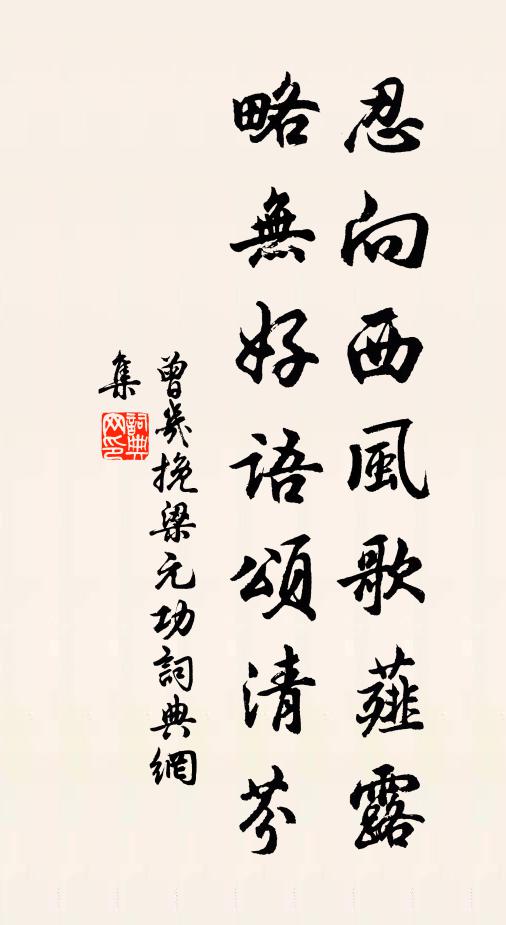 忍向西風歌薤露
略無好語頌清芬
曾幾挽梁元功詞典網
集
詞典網印